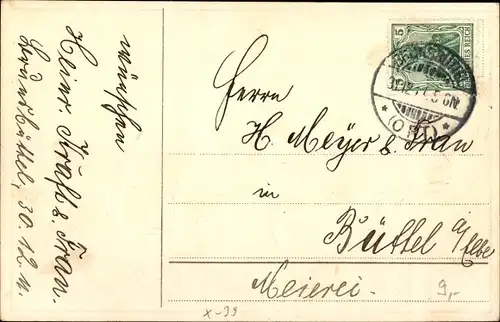 wünschen
Heinr. Kraft & Frau.
Brunsbüttel, 30.12.11.
5
DEUTSCHES REICH
31.12.11. 5-6N
* (ORT) *
Herrn
H. Meyer & Frau
in
Büttel a/Elbe
Meierei.
9,-
x-39